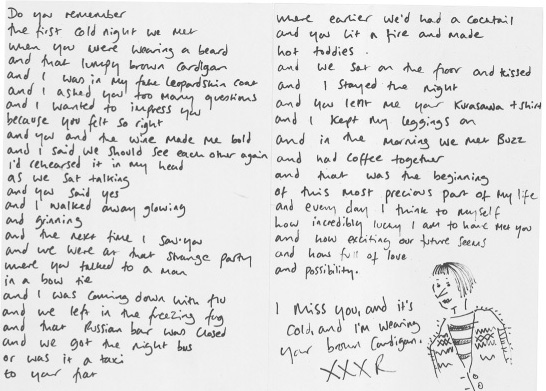 Do you remember
the first cold night we met
when you were wearing a beard
and that lumpy brown cardigan
and I was in my fake leopardskin coat
and I asked you too many questions
and I wanted to impress you
because you felt so right
and you and the wine made me bold
and I said we should see each other again
I'd rehearsed it in my head
as we sat talking
and you said yes
and I walked away glowing
and grinning
and the next time I saw you
and we were at that strange party
where you talked to a man
in a bow tie
and I was coming down with flu
and we left in the freezing fug
and that Russian bar was closed
and we got the night bus
or was it a taxi
to your flat
where earlier we'd had a cocktail
and you lit a fire and made
hot toddies.
and we sat on the floor and kissed
and I stayed the night
and you lent me your Kurosawa t shirt
and I kept my leggings on
and in the morning we met Buzz
and had coffee together
and that was the beginning
of this most precious part of my life
and every day I think to myself
how incredibly lucky I am to have met you
and how exciting our future seems
and how full of love
and possibility.
I miss you, and it's
cold, and I'm wearing
your brown cardigan.
XXX R